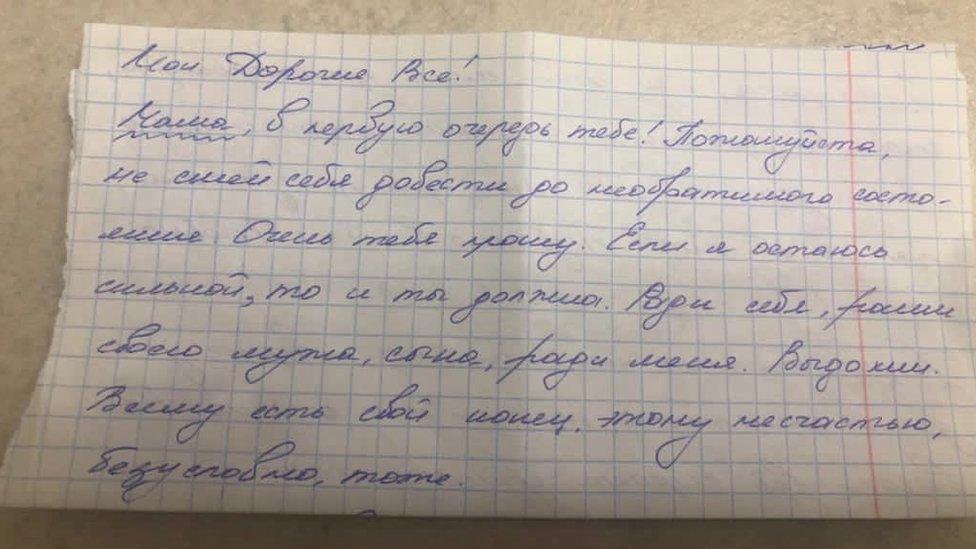 Мои Дорогие Все!
Мама, в первую очередь тебе! Пожалуйста,
не смей себя довести до необратимого состо-
яния. Очень тебя прошу. Если я остаюсь
сильной, то и ты должна. Ради себя, ради
своего мужа, сына, ради меня. Выдохни.
Всему есть свой конец. этому несчастью,
безусловно, тоже.